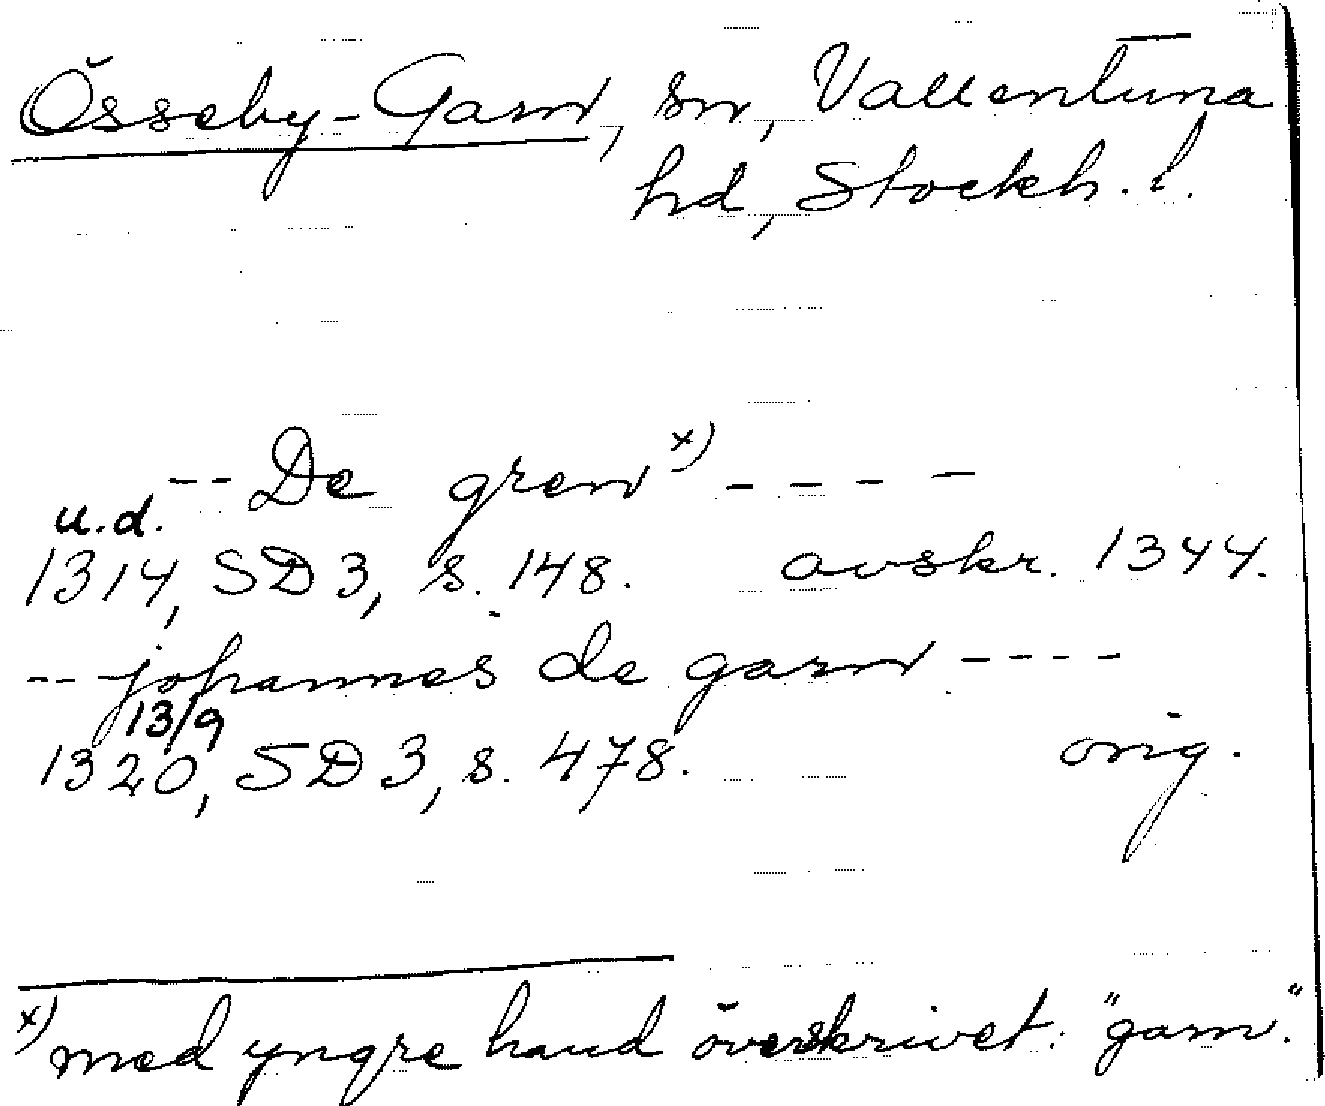 Össeby-Garn, sn, Vallentuna
hd, Stockh. l.
-- De gren x) ----
u.d.
1314, SD 3, s. 148. avskr. 1344.
-- johannes de garn ----
13/9
1320, SD 3, s. 478. orig.
x) med yngre hand överskrivet: "garn."